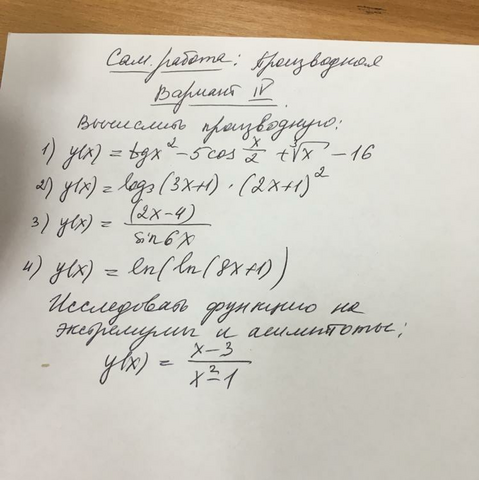 Сам. работа: производная
Вариант IV.
Вычислить производную:
1) y(x) = tgx² - 5cos x/2 + ∛x - 16
2) y(x) = log₃(3x+1) · (2x+1)²
3) y(x) = (2x-4) / sin6x
4) y(x) = ln(ln(8x+1))
Исследовать функцию на
экстремумы и асимптоты:
y(x) = x-3 / x²-1